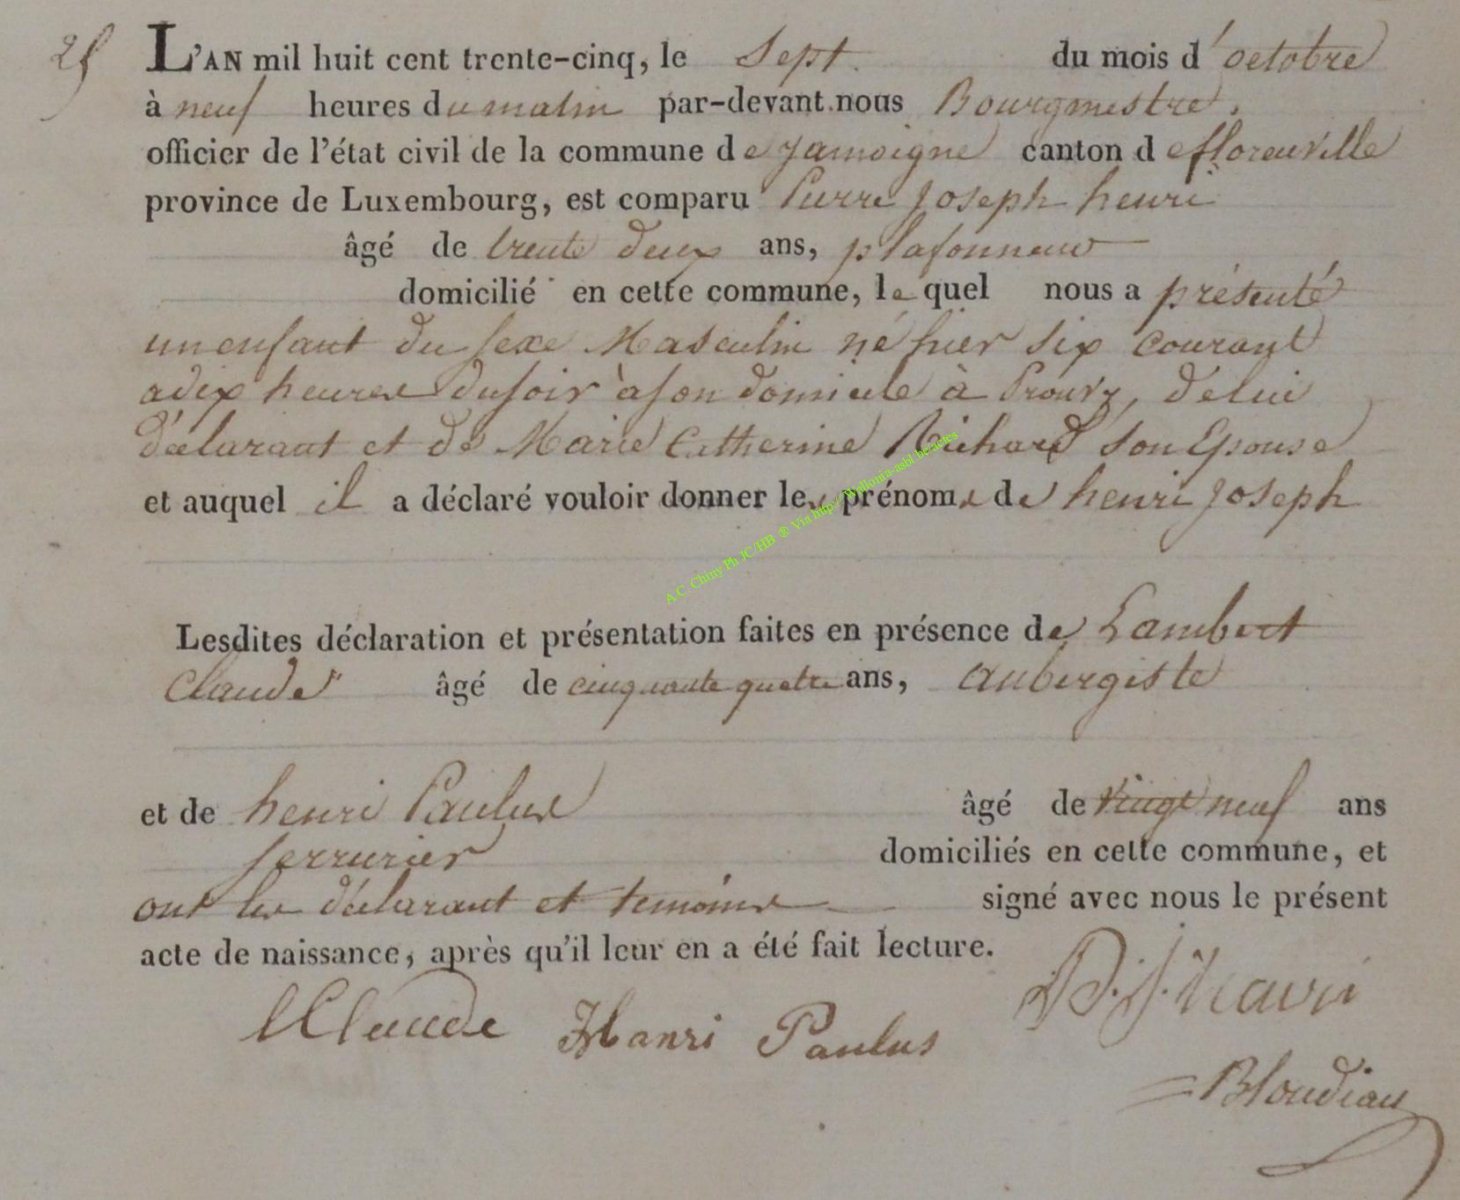 25
L'AN mil huit cent trente-cinq, le Sept du mois d'octobre
à neuf heures du matin par-devant nous Bourgmestre,
officier de l'état civil de la commune de jamoigne canton de florenville
province de Luxembourg, est comparu Pierre joseph henri
âgé de trente deux ans, plafonneur
domicilié en cette commune, lequel nous a présenté
un enfant du sexe Masculin né hier six courant
a dix heures du soir a son domicile à Prouvy, de lui
déclarant et de Marie Catherine Richard son Epouse
et auquel il a déclaré vouloir donner les prénoms de henri joseph
A.C. Chiny Ph JC/HB ® Via http://Wallonia-asbl be/actes
Lesdites déclaration et présentation faites en présence de Lambert
Claude âgé de cinquante quatre ans, aubergiste
et de henri Paulus âgé de vingt neuf ans
serrurier domiciliés en cette commune, et
ont les déclarant et temoins signé avec nous le présent
acte de naissance, après qu'il leur en a été fait lecture.
LClaude Hanri Paulus P.J. Henri
Blondiau